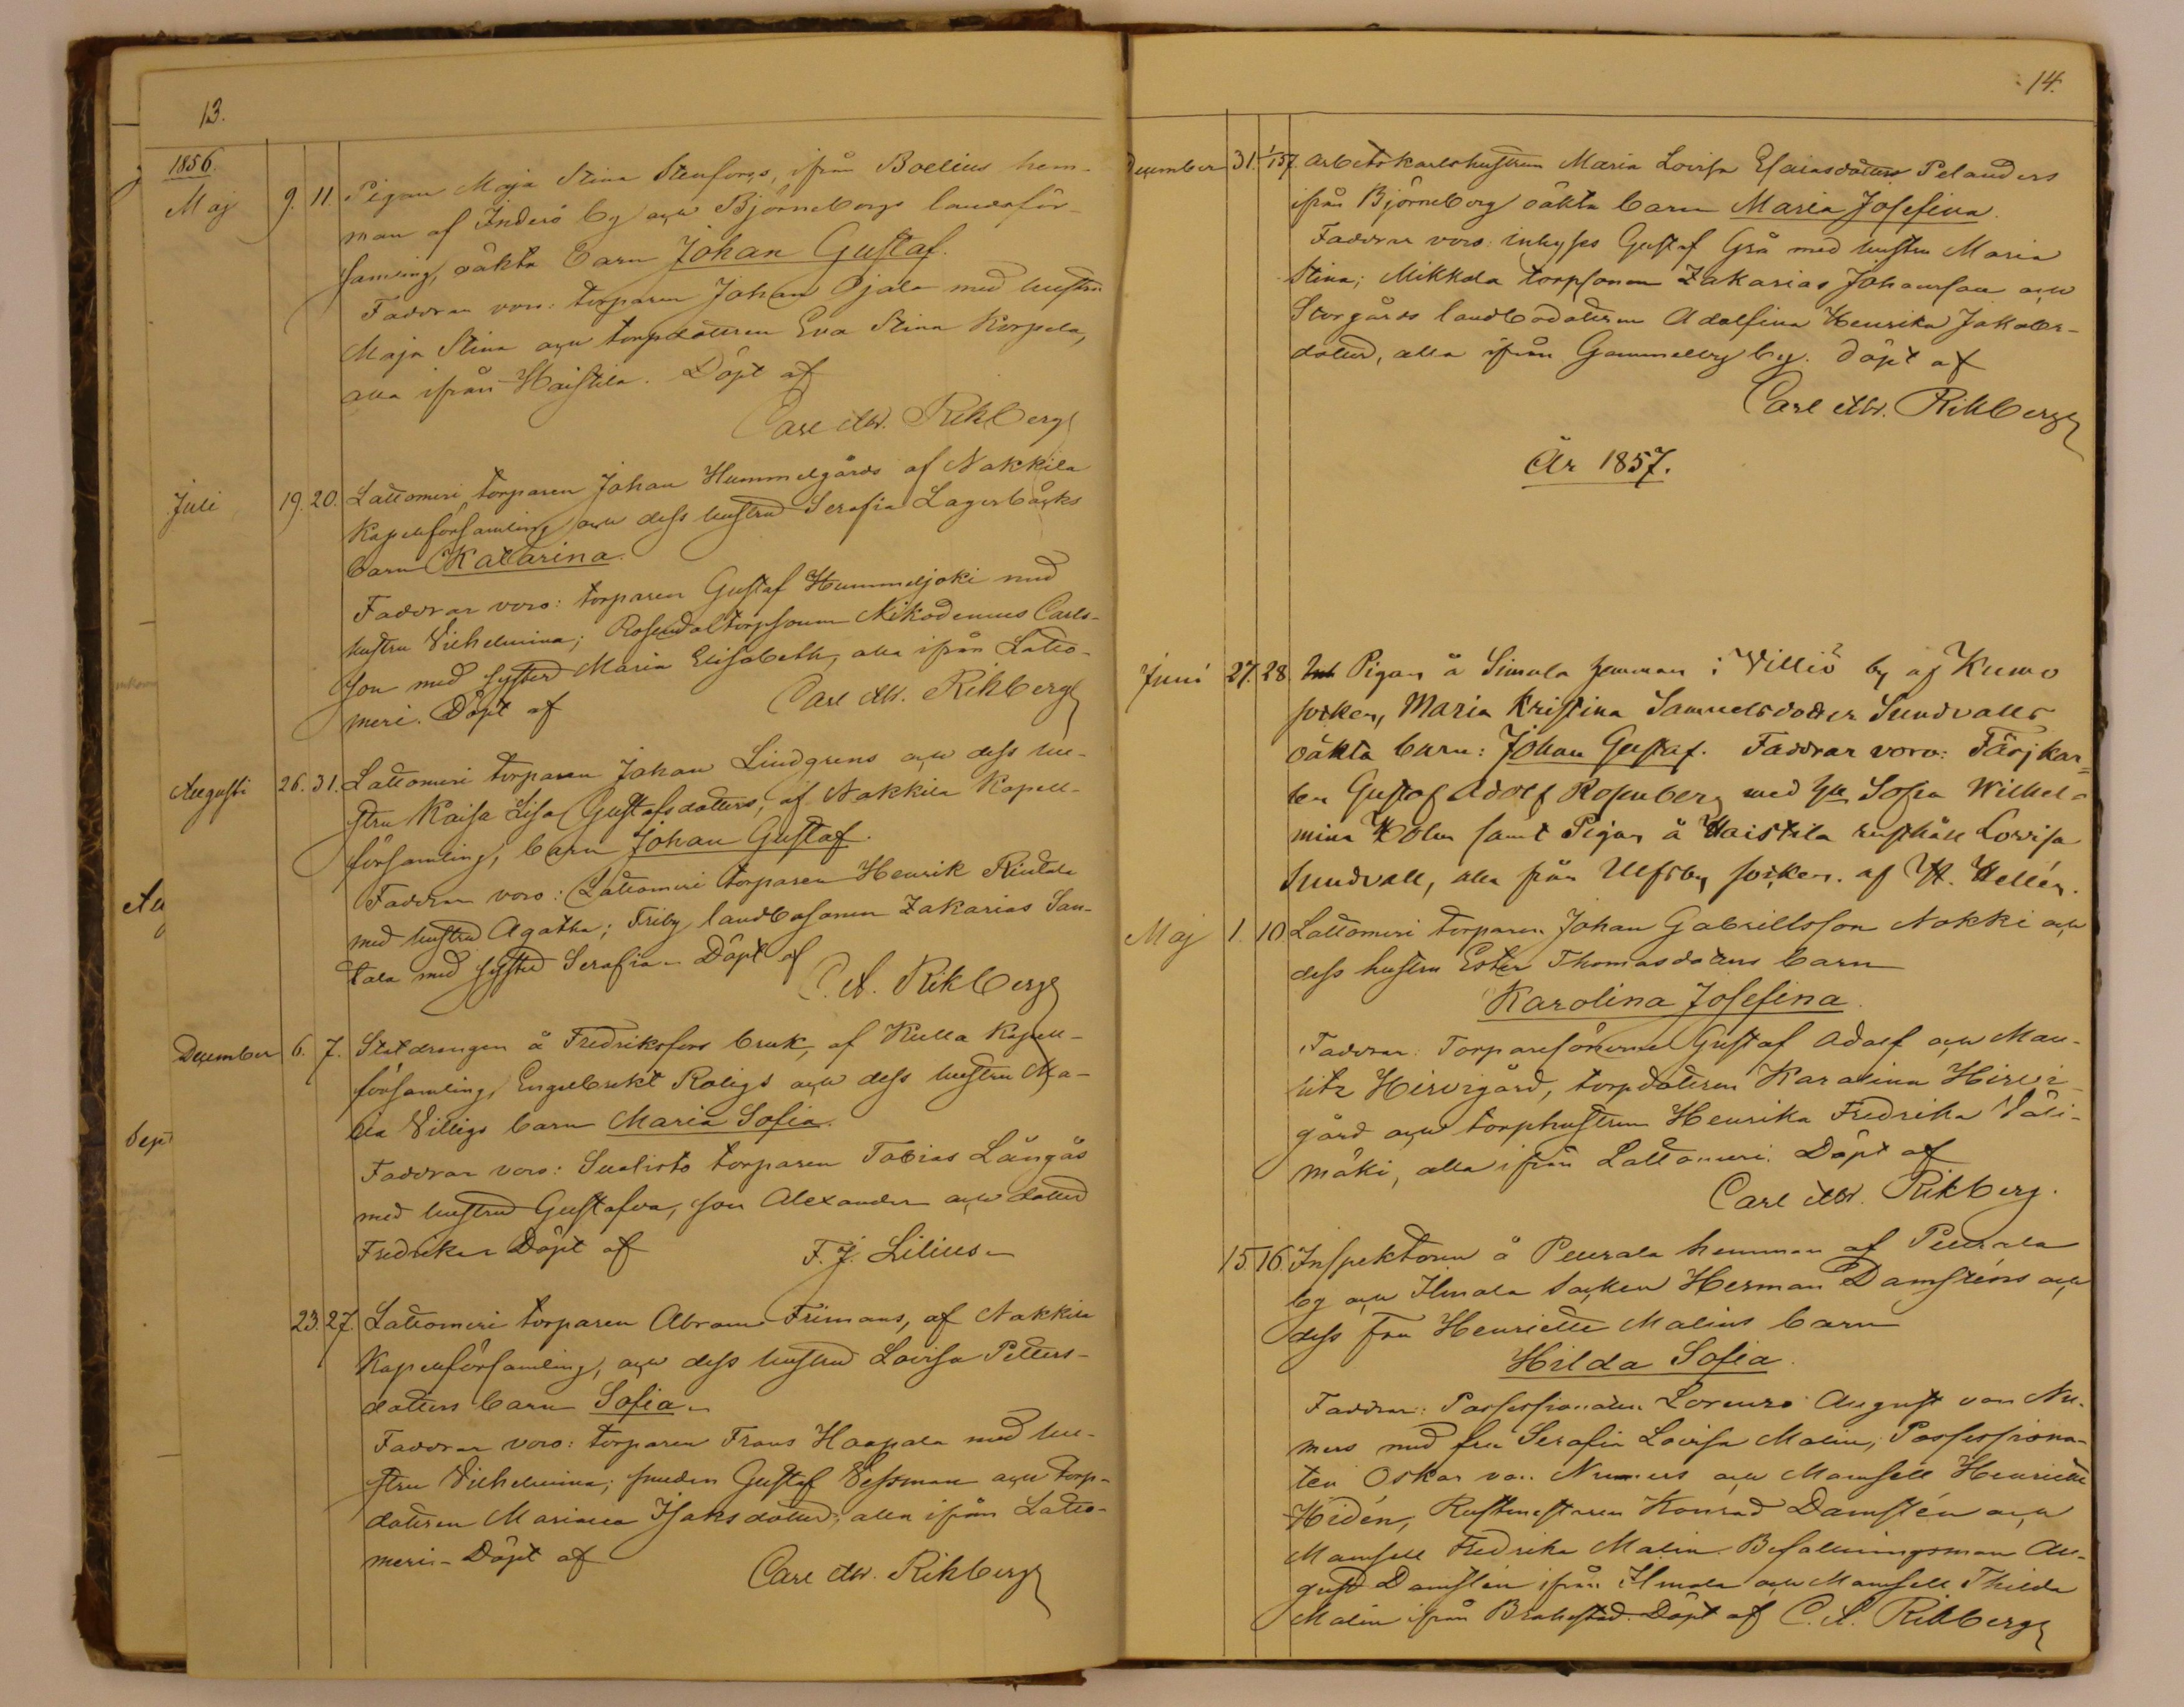 13.
1856.
Maj 9. 11. Pigan Maja Stina Stenfors, ifrån Boelius hem-
man af Inderö by och Björneborgs landsför-
samling, oäkta barn Johan Gustaf.
Faddrar voro: torparen Johan Ojala med hustru
Maja Stina och torpdottren Eva Stina Korpela,
alla ifrån Haistila. Döpt af
Carl Aw. Rikberg
Juli 19. 20. Lattomeri torparen Johan Hummelgårds af Nakkila
Kapellförsamling och dess hustru Serafia Lagerbäcks
barn Katarina.
Faddrar voro: torparen Gustaf Hummeljoki med
hustru Vilhelmina; Rosendal torpsonen Nikodemus Carls-
son med syster Maria Elisabeth, alla ifrån Latto-
meri. Döpt af Carl Aw. Rikberg
Augusti 26. 31. Lattomeri torparen Johan Lindgrens och dess hu-
stru Kaisa Lisa Gustafsdotters, af Nakkila Kapell-
församling, barn Johan Gustaf.
Faddrar voro: Lattomeri torparen Henrik Rintala
med hustru Agatha; Friby landbosonen Zakarias San-
tala med syster Serafia. Döpt af
C. A. Rikberg
December 6. 7. Statdrengen å Fredriksfors bruk, af Kulla Kapell-
församling, Engelbrekt Roligs och dess hustru Ma-
ria Villigs barn Maria Sofia.
Faddrar voro: Suolisto torparen Tobias Långås
med hustru Gustafva, son Alexander och dotter
Fredrika. Döpt af F. J. Lilius.
23. 27. Lattomeri torparen Abram Frimans, af Nakkila
Kapellförsamling, och dess hustru Lovisa Petters-
dotters barn Sofia.
Faddrar voro: torparen Frans Haapala med hu-
stru Vilhelmina; smeden Gustaf Vessman och torp-
dottren Mariana Isaksdotter, alla ifrån Latto-
meri. Döpt af
Carl Aw. Rikberg
14.
December 31. 1/1 57. Arbetskarlshustrun Maria Lovisa Esaiasdotters Pelanders
ifrån Björneborg oäkta barn Maria Josefina.
Faddrar voro: inhyses Gustaf Grå med hustru Maria
Stina; Mikkola torpsonen Zakarias Johansson och
Storgårds landbodottren Adolfina Henrika Jakobs-
dotter, alla ifrån Gammelby by. Döpt af
Carl Aw. Rikberg
År 1857.
Juni 27. 28. Pigan å Simula hemman i Villiö by af Kumo
socken, Maria Kristina Samuelsdotter Sundvalls
oäkta barn: Johan Gustaf. Faddrar voro: Färjkar-
len Gustaf Adolf Rosenberg med h Sofia Wilhel-
mina Holm samt Pigan å Haistila rusthåll Lovisa
Sundvall, alla från Ulfsby socken. af H. Hellén.
Maj 1. 10. Lattomeri torparen Johan Gabrielsson Nokki och
dess hustru Ester Thomasdotters barn
Karolina Josefina.
Faddrar: Torparesönerne Gustaf Adolf och Mau-
litz Hirvigård, torpdottren Karolina Hirvi-
gård och torphustrun Henrika Fredrika Väli-
mäki, alla ifrån Lattomeri. Döpt af
Carl Aw. Rikberg.
15. 16. Inspektoren å Peurala hemman af Peurala
by och Ilmola socken Herman Damsténs och
dess fru Henriette Malins barn
Hilda Sofia.
Faddrar: Possessionaten Lorenzo August von Nu-
mers med fru Serafia Lovisa Malin; Possessiona-
ten Oskar von Numers och Mamsell Henriette
Hidén, Rustmestaren Konrad Damstén och
Mamsell Fredrika Malin. Befallningsman Au-
gust Damstén ifrån Ilmola och Mamsell Thilda
Malin ifrån Brahestad. Döpt af C. A. Rikberg